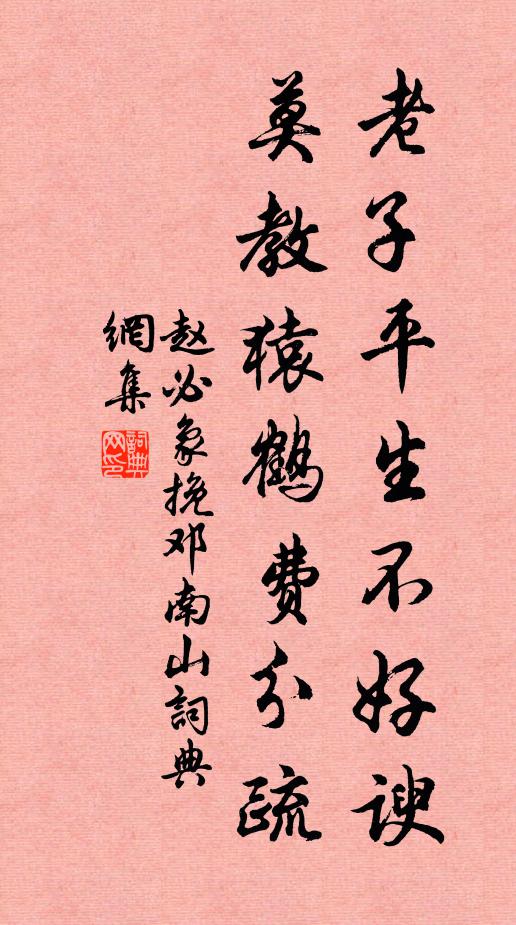 老子平生不好諛
莫教猿鶴費分疏
赵必象挽邓南山詞典
網集
詞典
网印